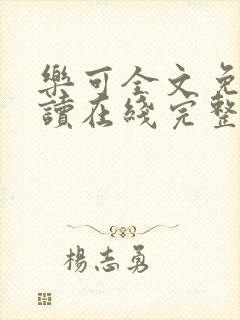 樂可全文免
讀在綫完整
楊志勇